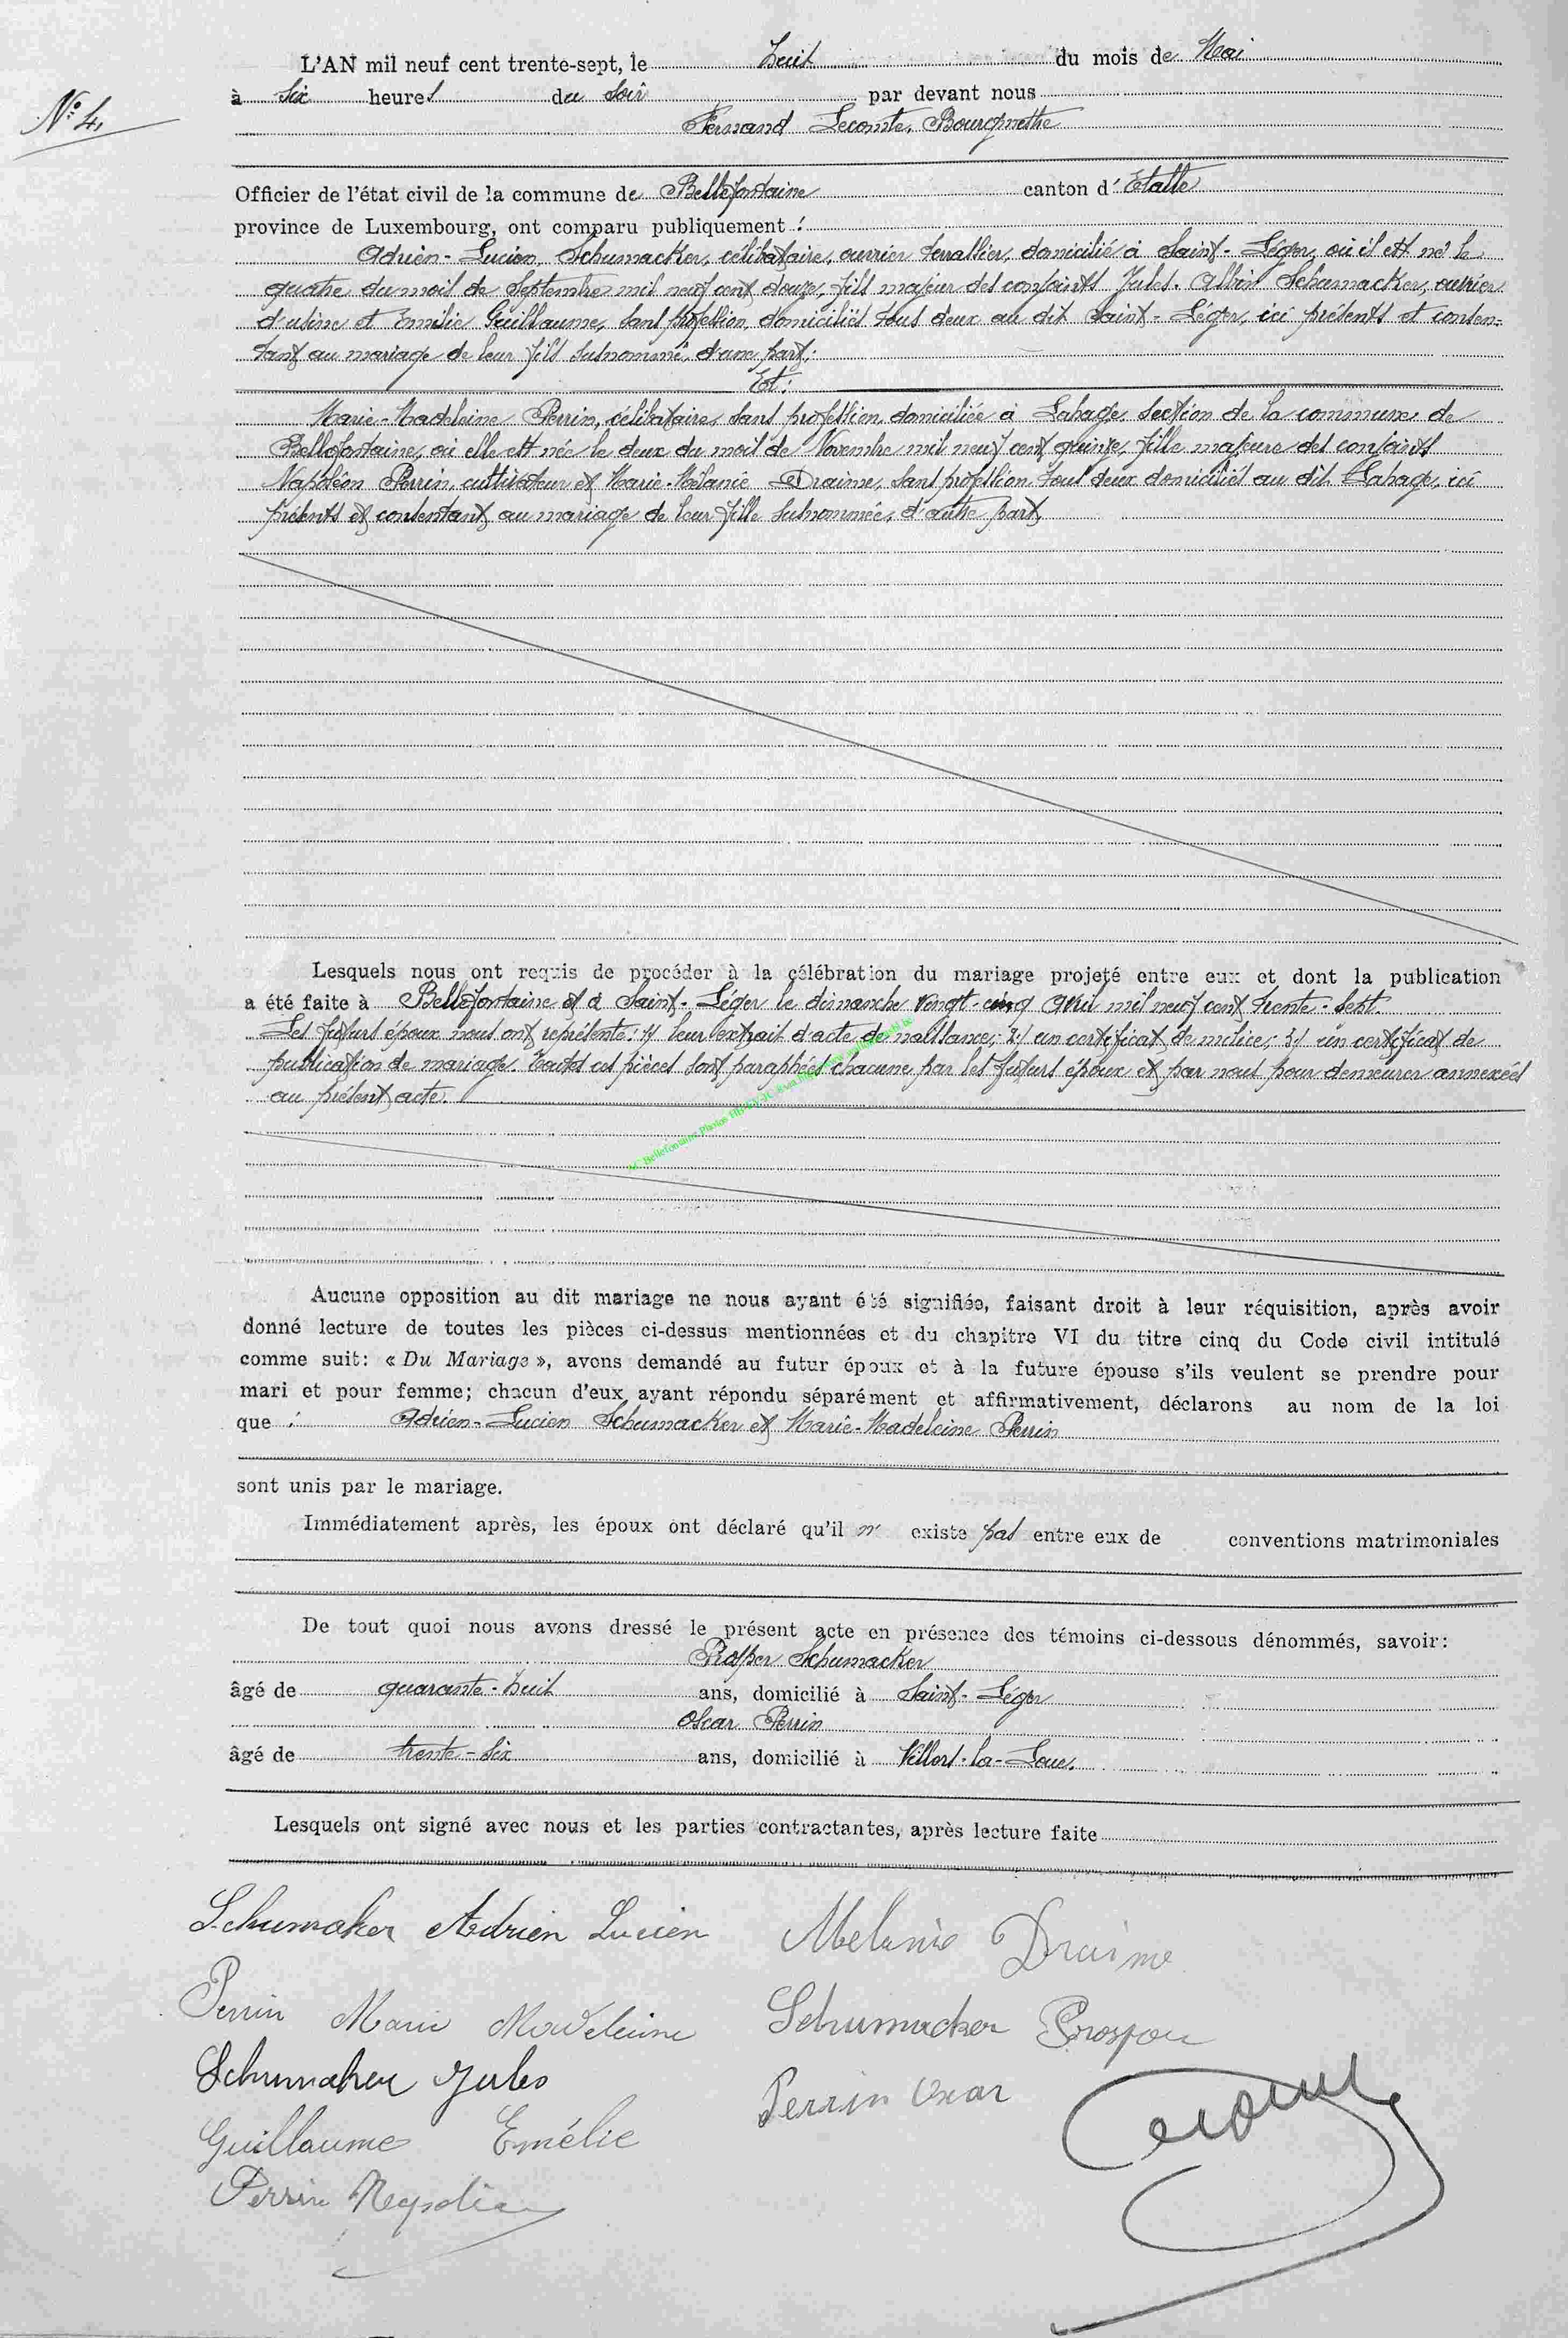 L'AN mil neuf cent trente-sept, le huit du mois de Mai
N° 4.
à six heures du soir par devant nous
Fernand Lecomte, Bourgmestre
Officier de l'état civil de la commune de Bellefontaine canton d' Etalle
province de Luxembourg, ont comparu publiquement :
Adrien-Lucien Schumacker, célibataire, ouvrier lerrallier, domicilié à Saint-Léger, où il est né le
quatre du mois de Septembre mil neuf cent douze, fils majeur des conjoints Jules-Albin Schumacker, ouvrier
d'usine et Emilie Guillaume, sans profession, domiciliés tous deux au dit Saint-Léger, ici présents et consen-
tant au mariage de leur fils susnommé, d'une part;
Et:
Marie-Madeleine Perrin, célibataire, sans profession, domiciliée à Lahage, section de la commune de
Bellefontaine, où elle est née le deux du mois de Novembre mil neuf cent quinze, fille majeure des conjoints
Napoléon Perrin, cultivateur et Marie-Mélanie Draime, sans profession, tous deux domiciliés au dit Lahage, ici
présents et consentant au mariage de leur fille susnommée, d'autre part,
Lesquels nous ont requis de procéder à la célébration du mariage projeté entre eux et dont la publication
a été faite à Bellefontaine et à Saint-Léger le dimanche vingt-cinq Avril mil neuf cent trente-sept.
Les futurs époux nous ont représenté: 1/ leur extrait d'acte de naissance; 2/ un certificat de milice; 3/ un certificat de
publication de mariage. Toutes ces pièces sont paraphées chacune par les futurs époux et par nous pour demeurer annexées
au présent acte.
AC Bellefontaine Photos
Aucune opposition au dit mariage ne nous ayant été signifiée, faisant droit à leur réquisition, après avoir
donné lecture de toutes les pièces ci-dessus mentionnées et du chapitre VI du titre cinq du Code civil intitulé
comme suit: « Du Mariage », avons demandé au futur époux et à la future épouse s'ils veulent se prendre pour
mari et pour femme; chacun d'eux ayant répondu séparément et affirmativement, déclarons au nom de la loi
que : Adrien-Lucien Schumacker et Marie-Madeleine Perrin
sont unis par le mariage.
Immédiatement après, les époux ont déclaré qu'il n' existe pas entre eux de conventions matrimoniales
De tout quoi nous avons dressé le présent acte en présence des témoins ci-dessous dénommés, savoir:
Prosper Schumacker
âgé de quarante-huit ans, domicilié à Saint-Léger
Oscar Perrin
âgé de trente-six ans, domicilié à Villers-la-Loue.
Lesquels ont signé avec nous et les parties contractantes, après lecture faite
Schumaker Adrien Lucien
Melanie Draime
Perrin Marie Madeleine
Schumacker Prosper
Schumaker Jules
Perrin Oscar
Guillaume Emélie
Perrin Napoléon